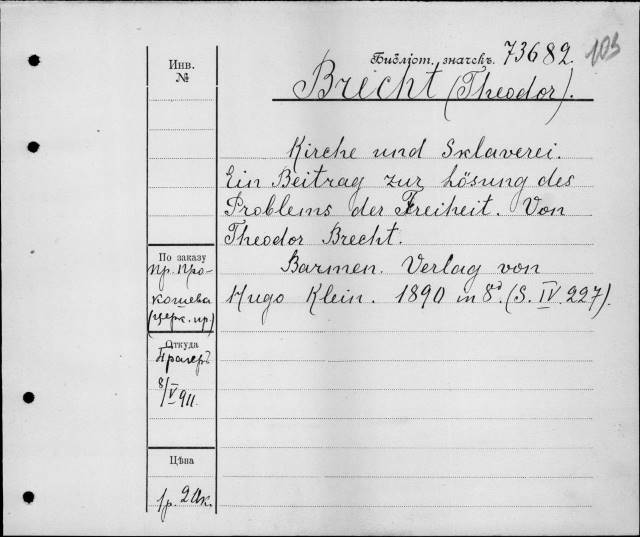 Библіот. значекъ. 73682. 103
Brecht (Theodor).
Kirche und Sklaverei.
Ein Beitrag zur Lösung des
Problems der Freiheit. Von
Theodor Brecht.
Barmen. Verlag von
Hugo Klein. 1890 in 8º. (S. IV. 227).
Инв.
№
По заказу
пр. Про-
кошева
(церк. пр.)
Откуда
Прагеръ
8/V 911.
Цѣна
1р. 20к.